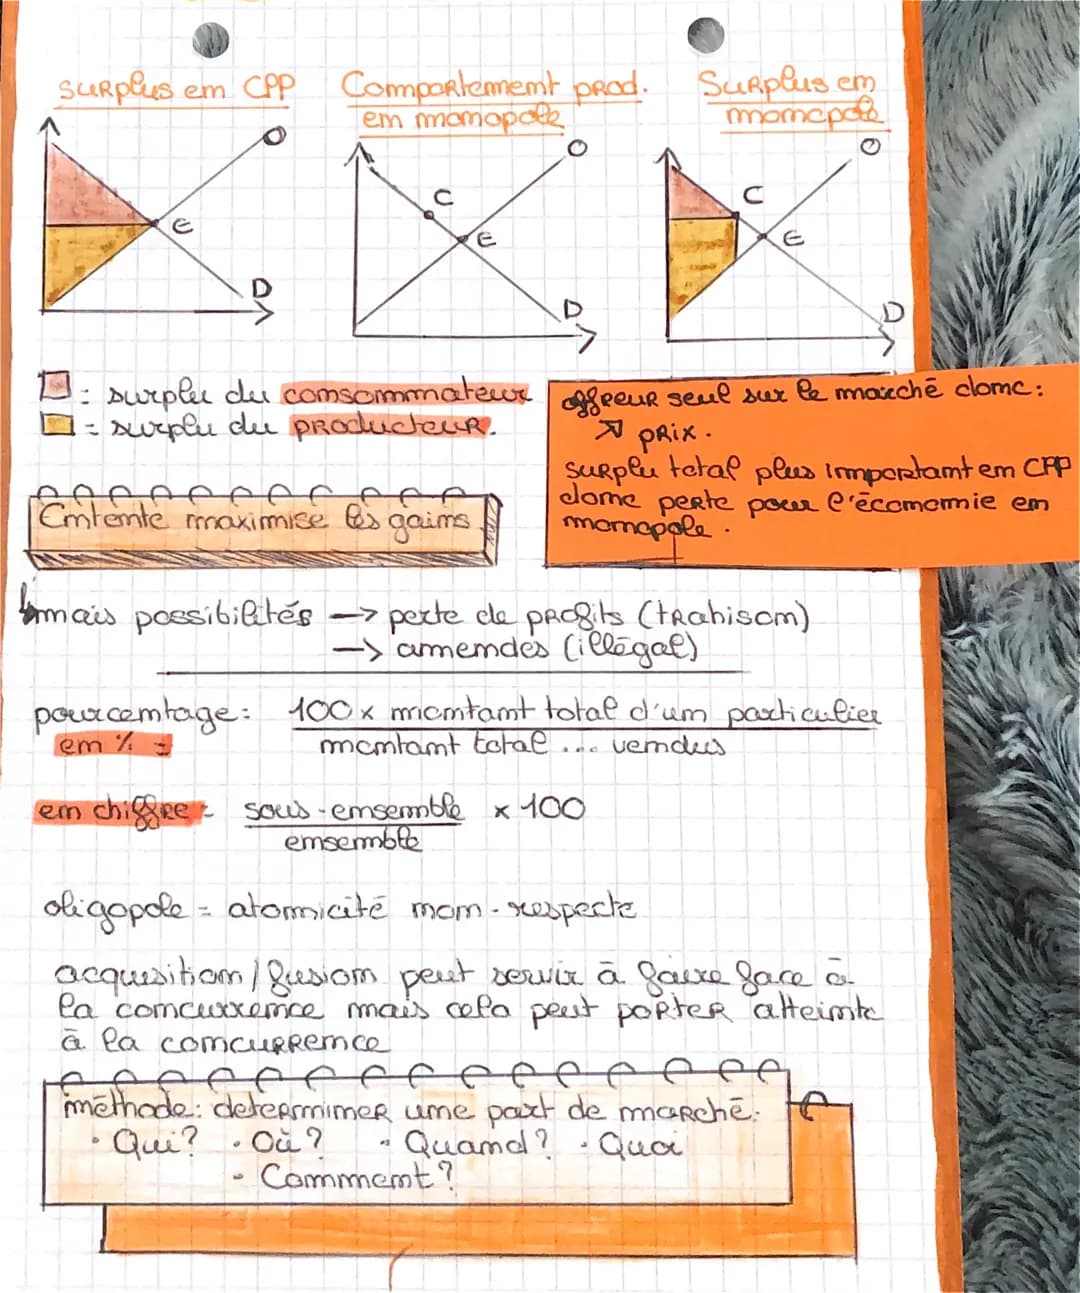 surplus en CPP
Comportement prod.
en monopole
Surplus en
monopole
O
E
D
O
C
E
D
O
C
E
D
: surplu du consommateur
= surplu du producteur.
offreur seul sur le marché donc :
↗ prix.
surplu total plus important en CPP
donc perte pour l'économie en
monopole.
Entente maximise les gains
↳ mais possibilités → perte de profits (trahison)
→ amendes (illégal)
pourcentage : 100 x montant total d'un particulier
en % = montant total ... vendus
en chiffre = sous-ensemble x 100
ensemble
oligopole = atomicité non-respecte
acquisition / fusion peut servir à faire face à
la concurrence mais cela peut porter atteinte
à la concurrence
méthode : determiner une part de marché :
· Qui ? · Où ? · Quand ? · Quoi
· Comment ?